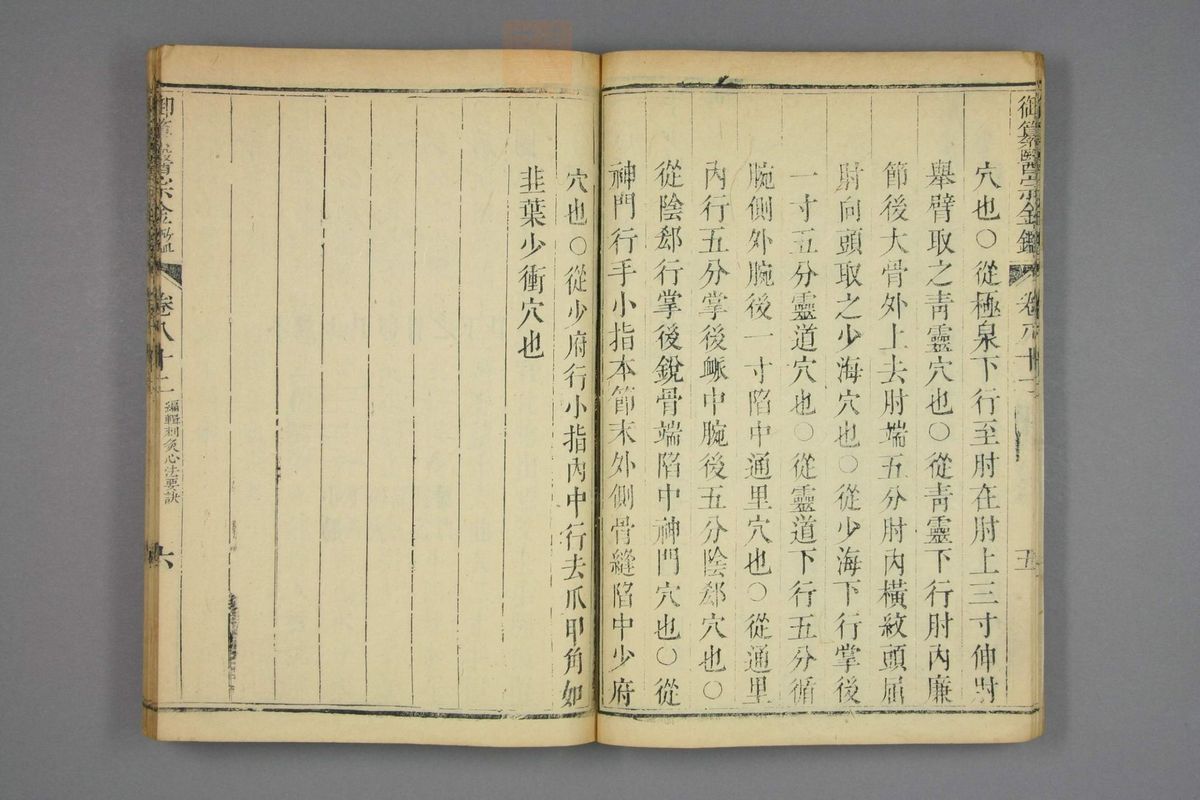 御纂醫宗金鑑
卷八十二
五
穴也○從極泉下行至肘在肘上三寸伸肘
舉臂取之靑靈穴也○從靑靈下行肘內廉
節後大骨外上去肘端五分肘內橫紋頭屈
肘向頭取之少海穴也○從少海下行掌後
一寸五分靈道穴也○從靈道下行五分循
腕側外腕後一寸陷中通里穴也○從通里
內行五分掌後脈中腕後五分陰郄穴也○
從陰郄行掌後銳骨端陷中神門穴也○從
神門行手小指本節末外側骨縫陷中少府
穴也○從少府行小指內中行去爪甲角如
韭葉少衝穴也
御纂醫宗金鑑
卷八十二
編輯刺灸心法要訣
六